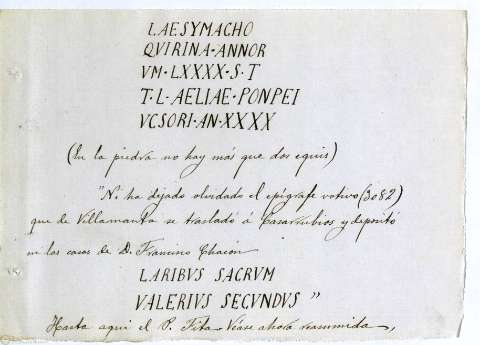 LAESYMACHO
QVIRINA·ANNOR
VM·LXXXX·S·T
T·L·AELIAE·PONPEI
VCSORI·AN·XXXX
(En la piedra no hay más que dos equis)
"Ni ha dejado olvidado el epígrafe votivo (3082)
que de Villamanta se trasladó á Casarrubios y depositó
en las casas de D. Francisco Chacón
LARIBVS SACRVM
VALERIVS SECVNDVS"
Hasta aqui el P. Fita. Véase ahora resumida,